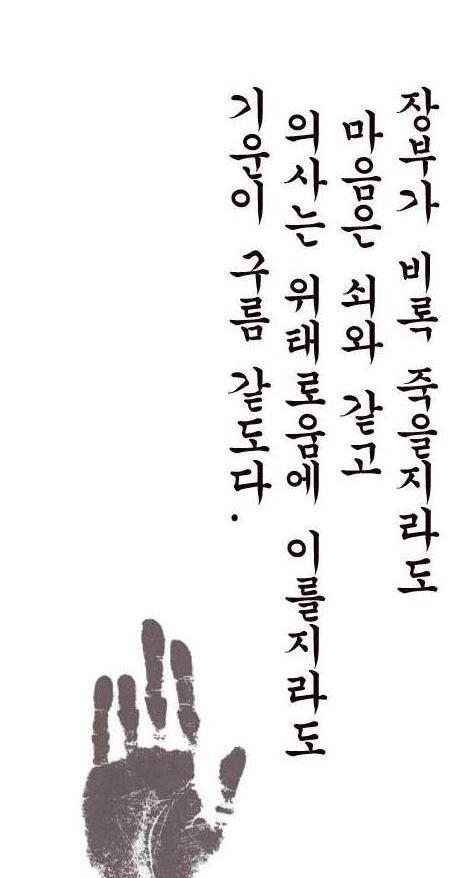 장부가 비록 죽을지라도
마음은 쇠와 같고
의사는 위태로움에 이를지라도
기운이 구름 같도다.